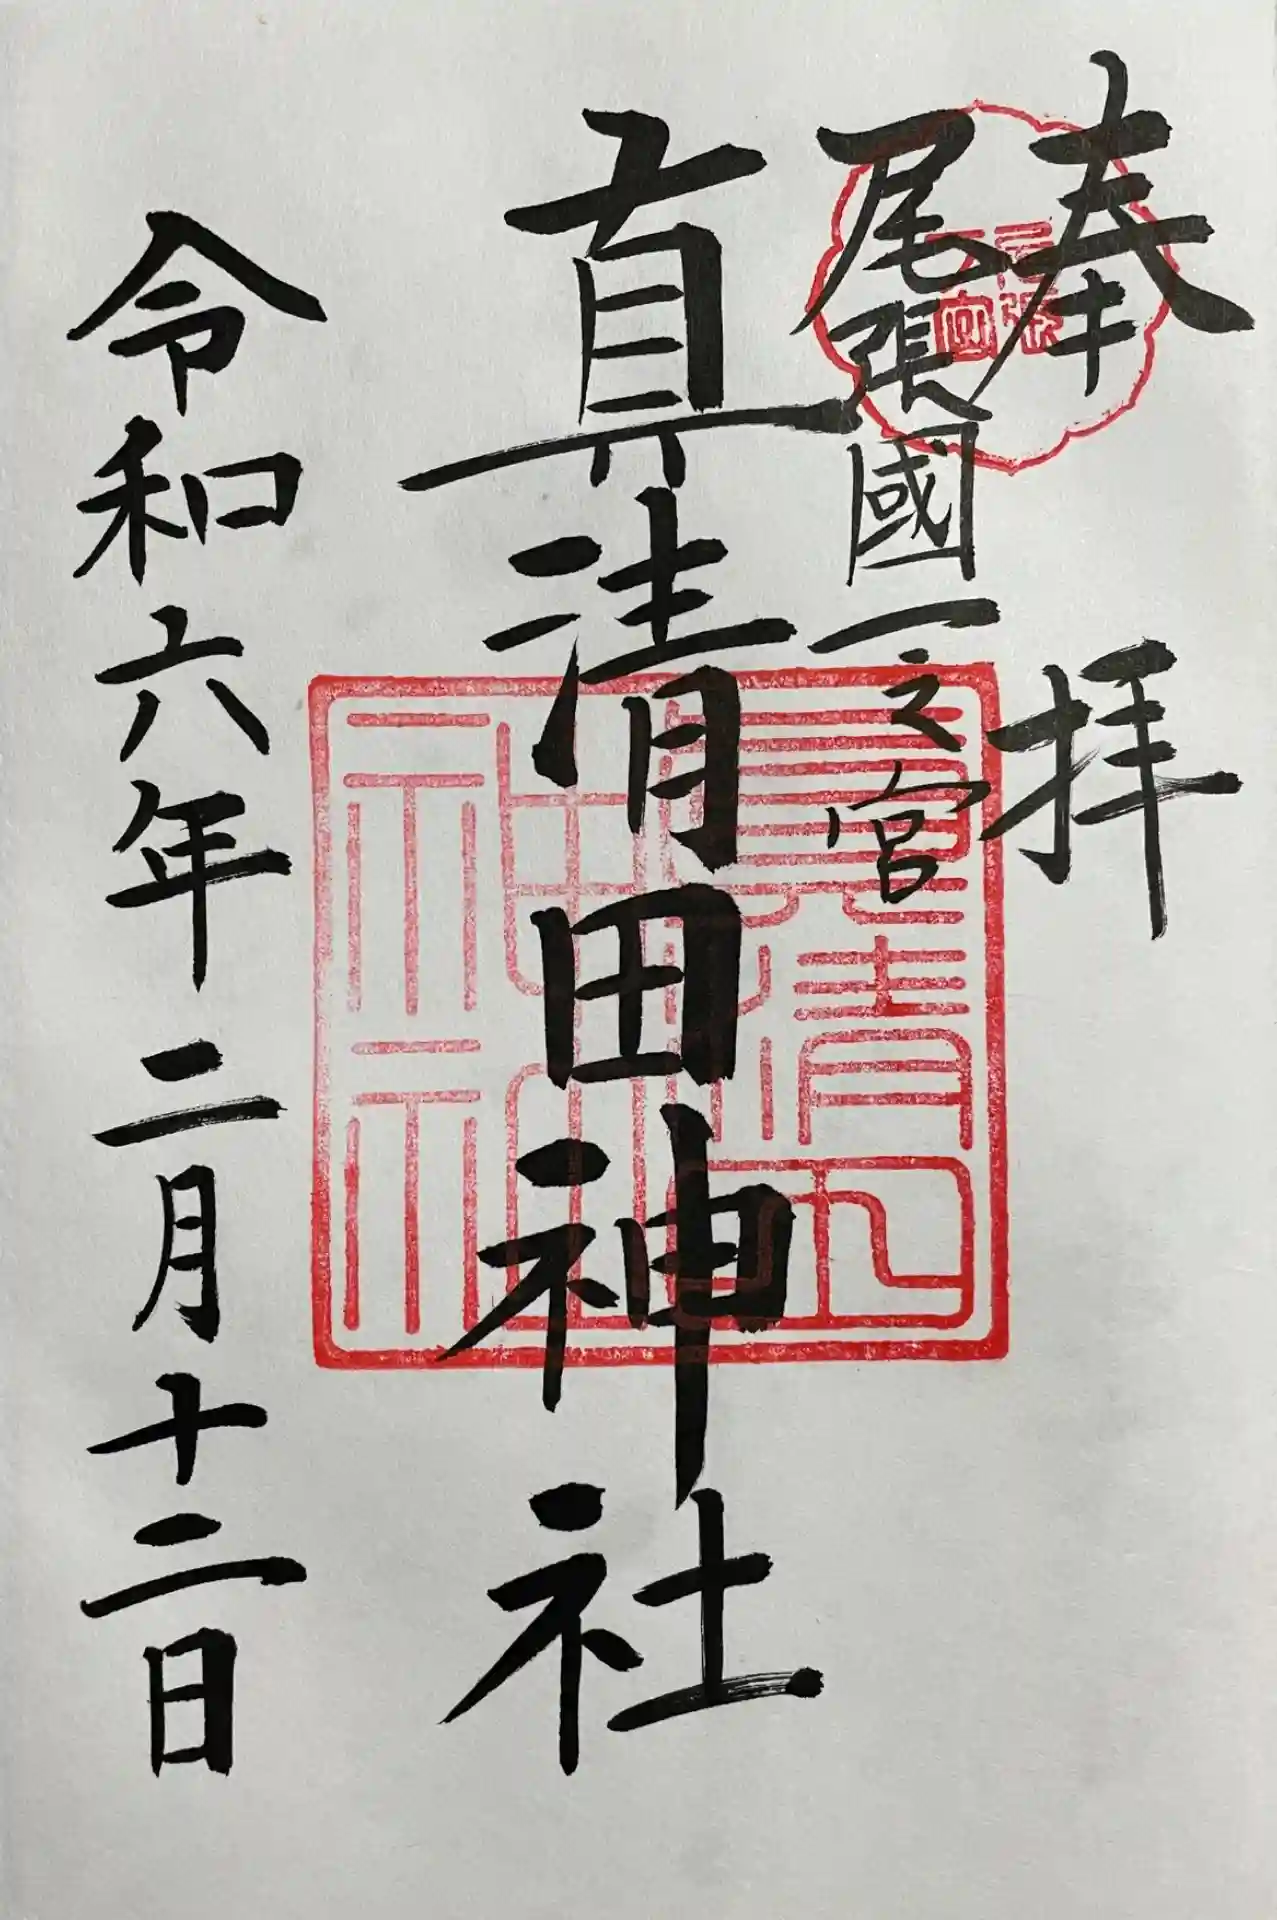 奉拝
尾張國一之宮
真清田神社
令和六年二月十二日
尾張
一宮
真清田
神社